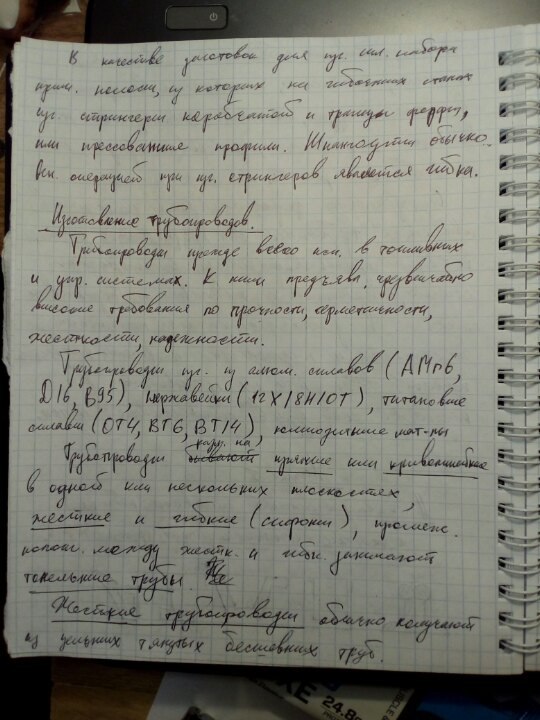 В качестве заготовок для изг. эл. набора
прим. полосы, из которых на гибочных станках
изг. стрингеры коробчатой и трапец. формы,
или прессованные профили. Шпангоуты обычно.
Вып. операцией при изг. стрингеров является гибка.
Изготовление трубопроводов.
Трубопроводы прежде всего исп. в топливных
и упр. системах. К ним предъявл. чрезвычайно
высокие требования по прочности, герметичности,
жесткости, надежности.
Трубопроводы изг. из алюм. сплавов (АМг6,
Д16, В95), нержавейки (12Х18Н10Т), титановые
сплавы (ОТ4, ВТ6, ВТ14), композитные мат-лы
Трубопроводы на прямые или криволинейные
в одной или нескольких плоскостях,
жесткие и гибкие (сифоны), промеж.
полож. между жестк. и гибк. занимают
тонельные трубы.
Жесткие трубопроводы обычно получают
из цельных тянутых бесшовных труб.
24.8
MUSCLE